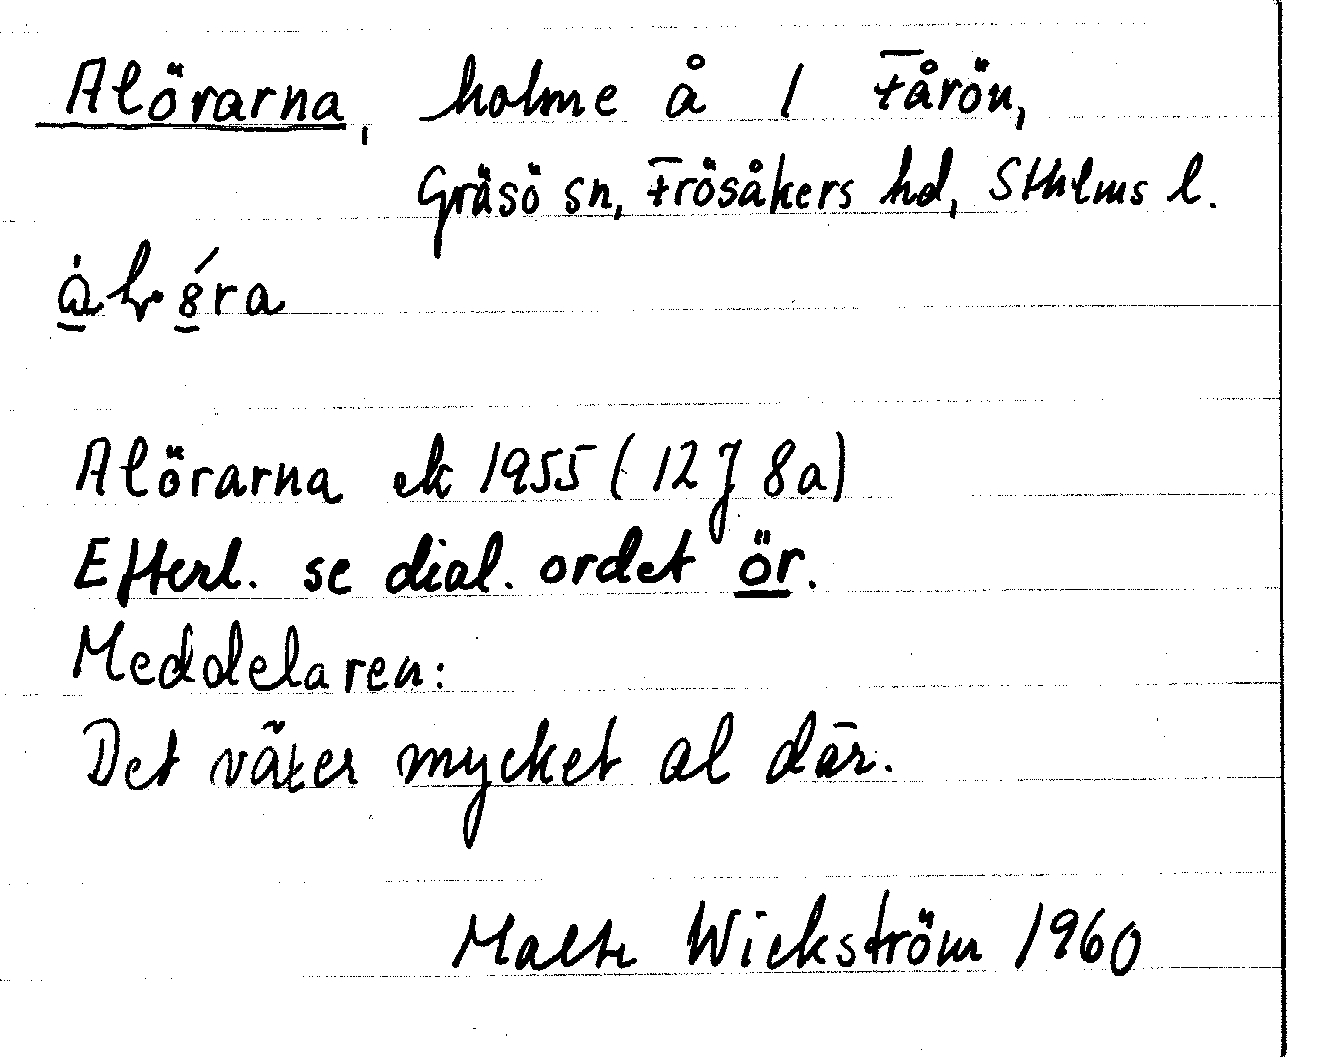 Alörarna, holme å 1 Fårön,
Gräsö sn, Frösåkers hd, Sthlms l.
Alörarna ek 1955 (12 J 8a)
Efterl. se dial. ordet ör.
Meddelaren:
Det växer mycket al där.
Malte Wickström 1960